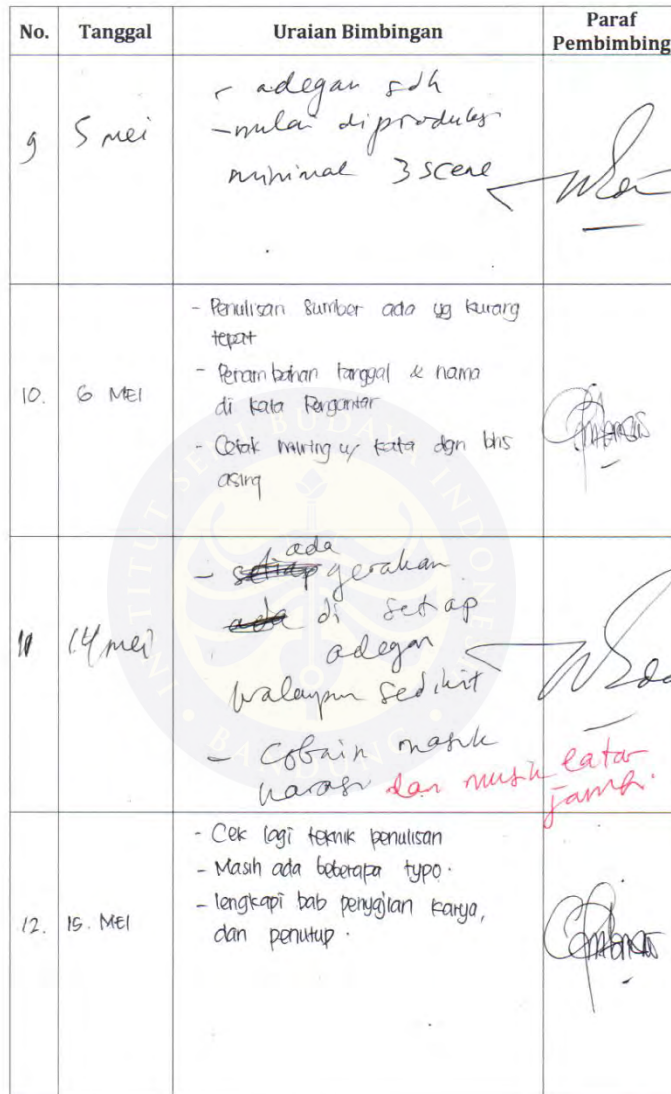 No. Tanggal Uraian Bimbingan Paraf Pembimbing
9 5 mei - adegan sdh
- mulai diproduksi
minimal 3 scene
10. 6 MEI - Penulisan sumber ada yg kurang
tepat
- Penambahan tanggal & nama
di kata Pengantar
- Cetak miring u/ kata dgn bhs
asing
11 14 mei - setiap ada gerakan
ada di setiap
adegan
walaupun sedikit
- Cobain masuk
narasi dan musik latar
12. 15. MEI - Cek lagi teknik penulisan
- Masih ada beberapa typo.
- lengkapi bab penyajian karya,
dan penutup.
INSTITUT SENI BUDAYA INDONESIA
BANDUNG